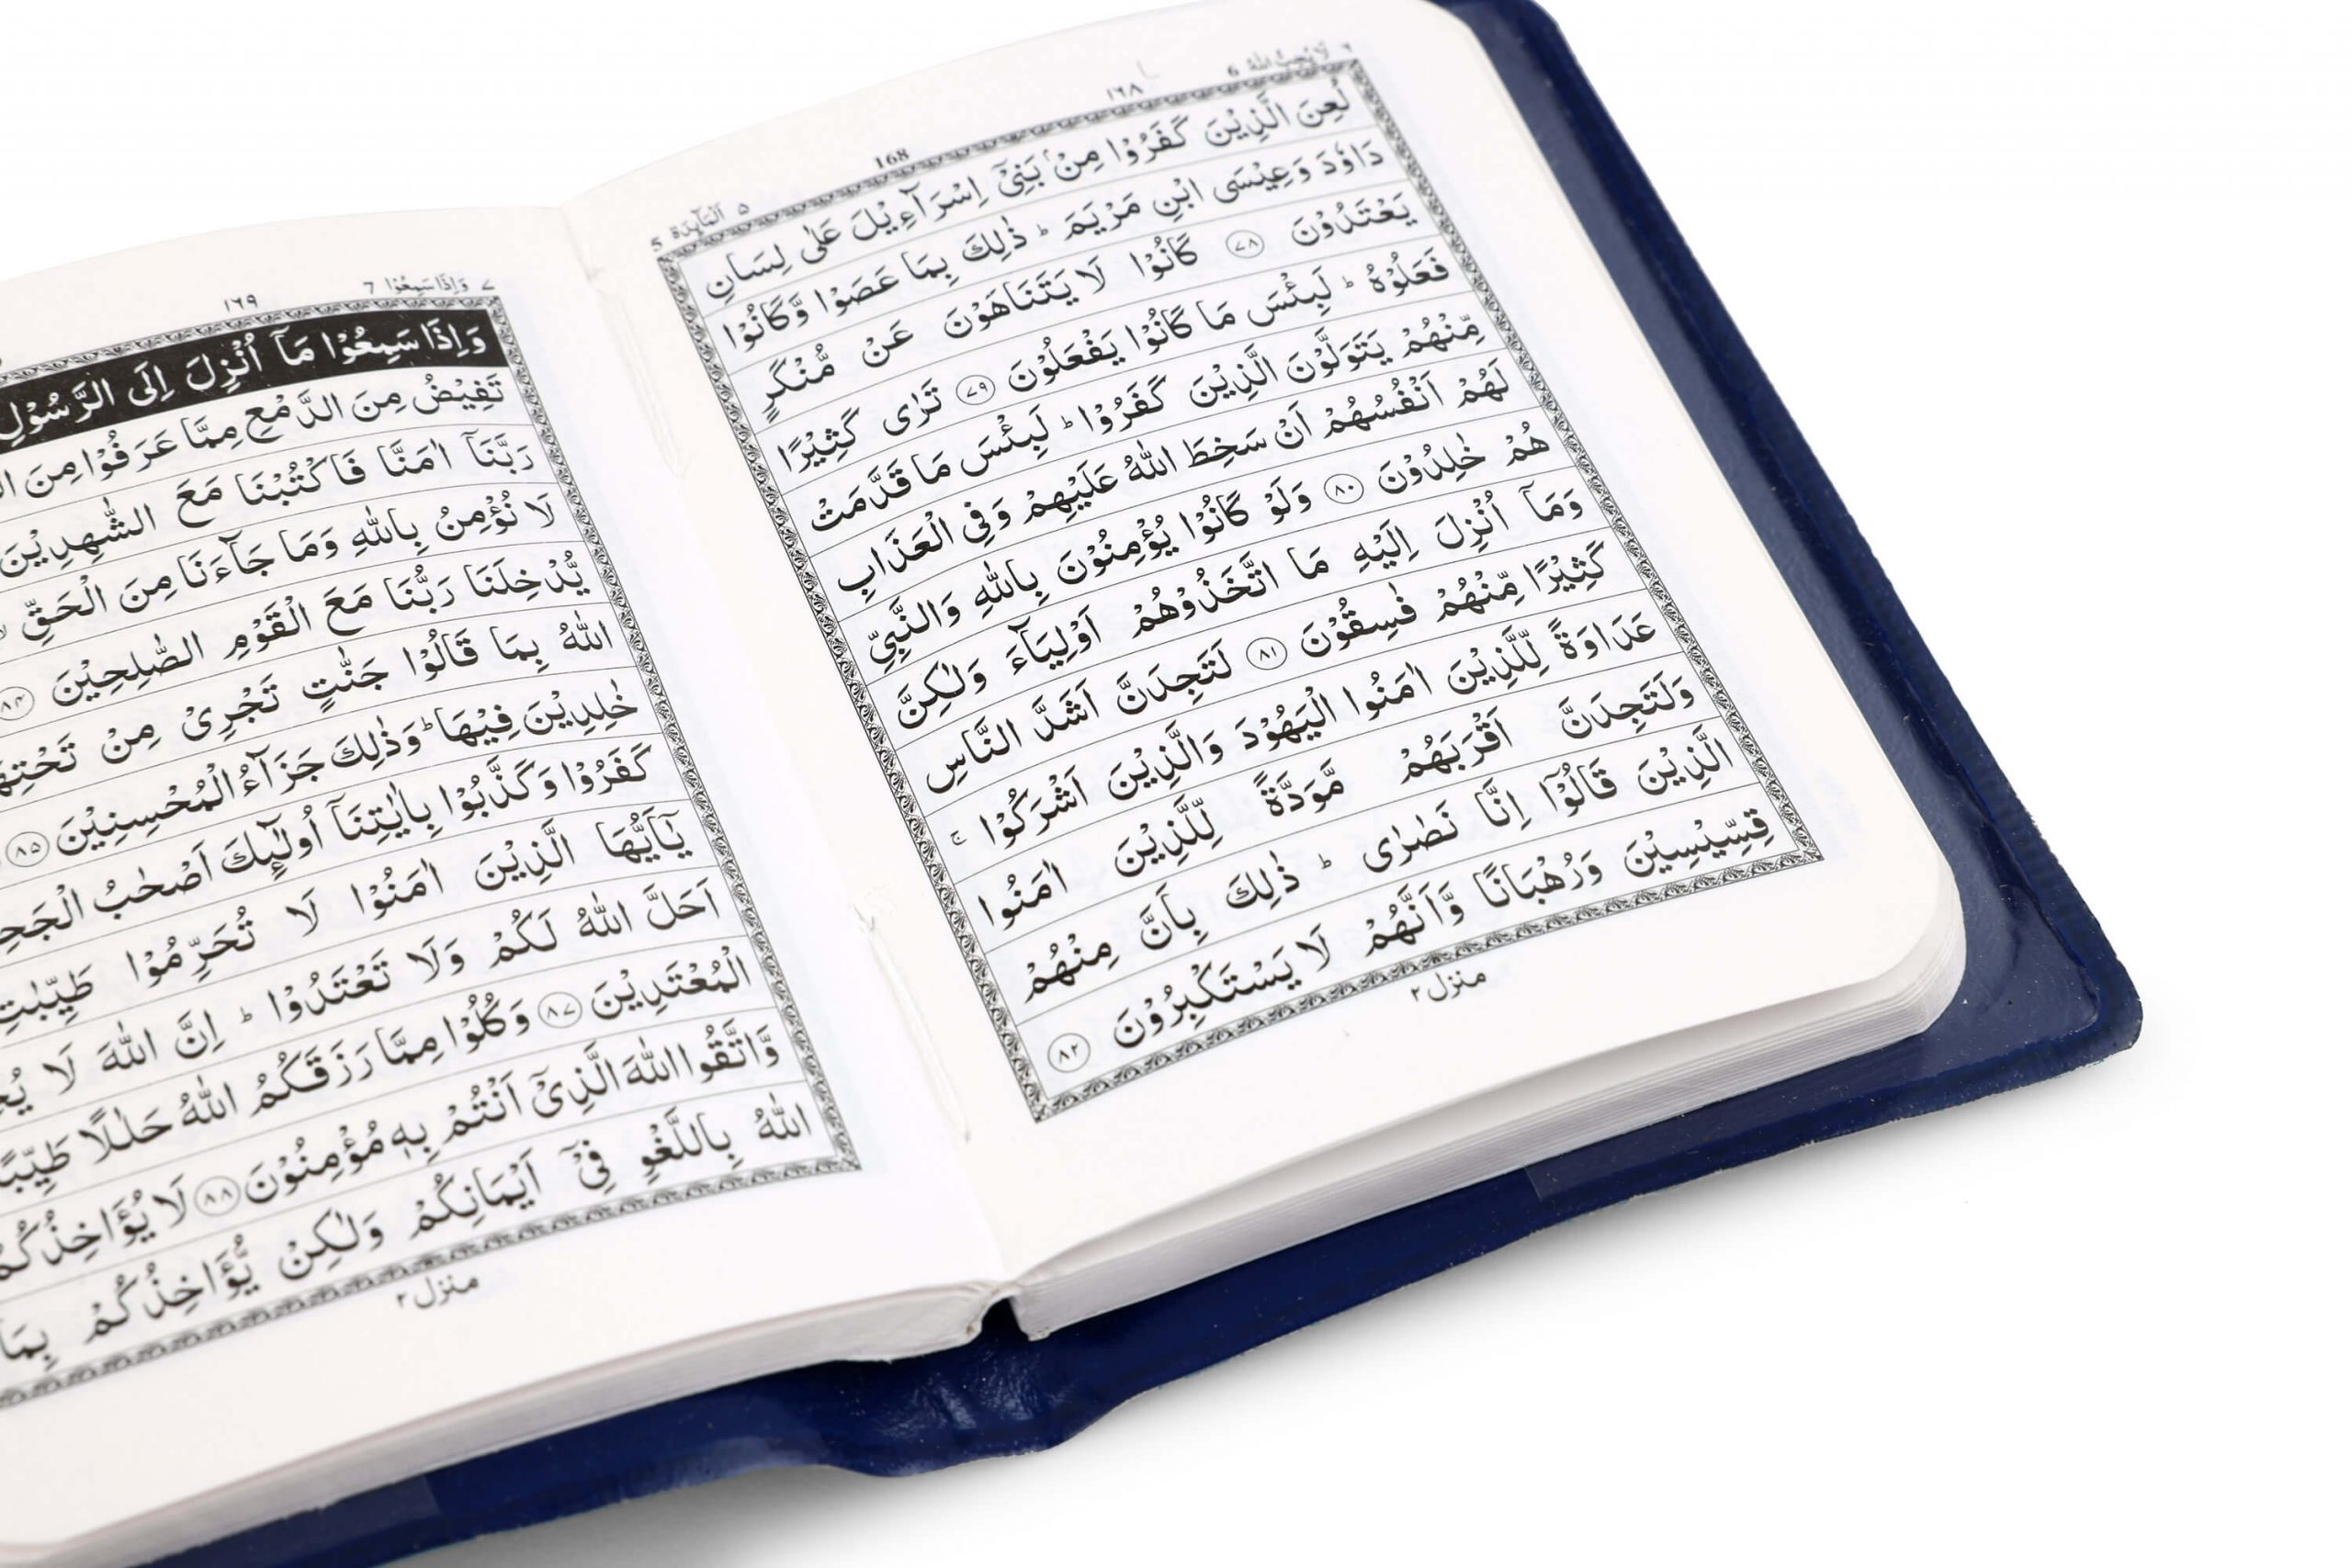 ٦ لَا يُحِبُّ اللهُ 6
١٦٨
168
٥ اَلْمَآىِٕدَة 5
لُعِنَ الَّذِيْنَ كَفَرُوْا مِنْۢ بَنِيْۤ اِسْرَآءِيْلَ عَلٰى لِسَانِ
دَاوٗدَ وَعِيْسَى ابْنِ مَرْيَمَ ؕ ذٰلِكَ بِمَا عَصَوْا وَّكَانُوْا
يَعْتَدُوْنَ ﴿۷۸﴾ كَانُوْا لَا يَتَنَاهَوْنَ عَنْ مُّنْكَرٍ
فَعَلُوْهُ ؕ لَبِئْسَ مَا كَانُوْا يَفْعَلُوْنَ ﴿۷۹﴾ تَرٰى كَثِيْرًا
مِّنْهُمْ يَتَوَلَّوْنَ الَّذِيْنَ كَفَرُوْا ؕ لَبِئْسَ مَا قَدَّمَتْ
لَهُمْ اَنْفُسُهُمْ اَنْ سَخِطَ اللهُ عَلَيْهِمْ وَفِي الْعَذَابِ
هُمْ خٰلِدُوْنَ ﴿۸۰﴾ وَلَوْ كَانُوْا يُؤْمِنُوْنَ بِاللهِ وَالنَّبِيِّ
وَمَاۤ اُنْزِلَ اِلَيْهِ مَا اتَّخَذُوْهُمْ اَوْلِيَآءَ وَلٰكِنَّ
كَثِيْرًا مِّنْهُمْ فٰسِقُوْنَ ﴿۸۱﴾ لَتَجِدَنَّ اَشَدَّ النَّاسِ
عَدَاوَةً لِّلَّذِيْنَ اٰمَنُوا الْيَهُوْدَ وَالَّذِيْنَ اَشْرَكُوْا ۚ
وَلَتَجِدَنَّ اَقْرَبَهُمْ مَّوَدَّةً لِّلَّذِيْنَ اٰمَنُوا
الَّذِيْنَ قَالُوْۤا اِنَّا نَصٰرٰى ؕ ذٰلِكَ بِاَنَّ مِنْهُمْ
قِسِّيْسِيْنَ وَرُهْبَانًا وَّاَنَّهُمْ لَا يَسْتَكْبِرُوْنَ ﴿۸۲﴾
منزل ٢
٧ وَاِذَا سَمِعُوْا 7
١٦٩
وَاِذَا سَمِعُوْا مَاۤ اُنْزِلَ اِلَى الرَّسُوْلِ
تَفِيْضُ مِنَ الدَّمْعِ مِمَّا عَرَفُوْا مِنَ
رَبَّنَاۤ اٰمَنَّا فَاكْتُبْنَا مَعَ الشّٰهِدِيْنَ
لَا نُؤْمِنُ بِاللهِ وَمَا جَآءَنَا مِنَ الْحَقِّ ۙ
يُّدْخِلَنَا رَبُّنَا مَعَ الْقَوْمِ الصّٰلِحِيْنَ ﴿۸۴﴾
اللهُ بِمَا قَالُوْا جَنّٰتٍ تَجْرِيْ مِنْ
خٰلِدِيْنَ فِيْهَا ؕ وَذٰلِكَ جَزَآءُ الْمُحْسِنِيْنَ ﴿۸۵﴾
كَفَرُوْا وَكَذَّبُوْا بِاٰيٰتِنَاۤ اُولٰٓىِٕكَ اَصْحٰبُ
يٰۤاَيُّهَا الَّذِيْنَ اٰمَنُوْا لَا تُحَرِّمُوْا طَيِّبٰتِ
اَحَلَّ اللهُ لَكُمْ وَلَا تَعْتَدُوْا ؕ اِنَّ اللهَ لَا
الْمُعْتَدِيْنَ ﴿۸۷﴾ وَكُلُوْا مِمَّا رَزَقَكُمُ اللهُ حَلٰلًا طَيِّبًا
وَّاتَّقُوا اللهَ الَّذِيْۤ اَنْتُمْ بِهٖ مُؤْمِنُوْنَ ﴿۸۸﴾ لَا يُؤَاخِذُكُمُ
اللهُ بِاللَّغْوِ فِيْۤ اَيْمَانِكُمْ وَلٰكِنْ يُّؤَاخِذُكُمْ بِمَا
منزل ٢